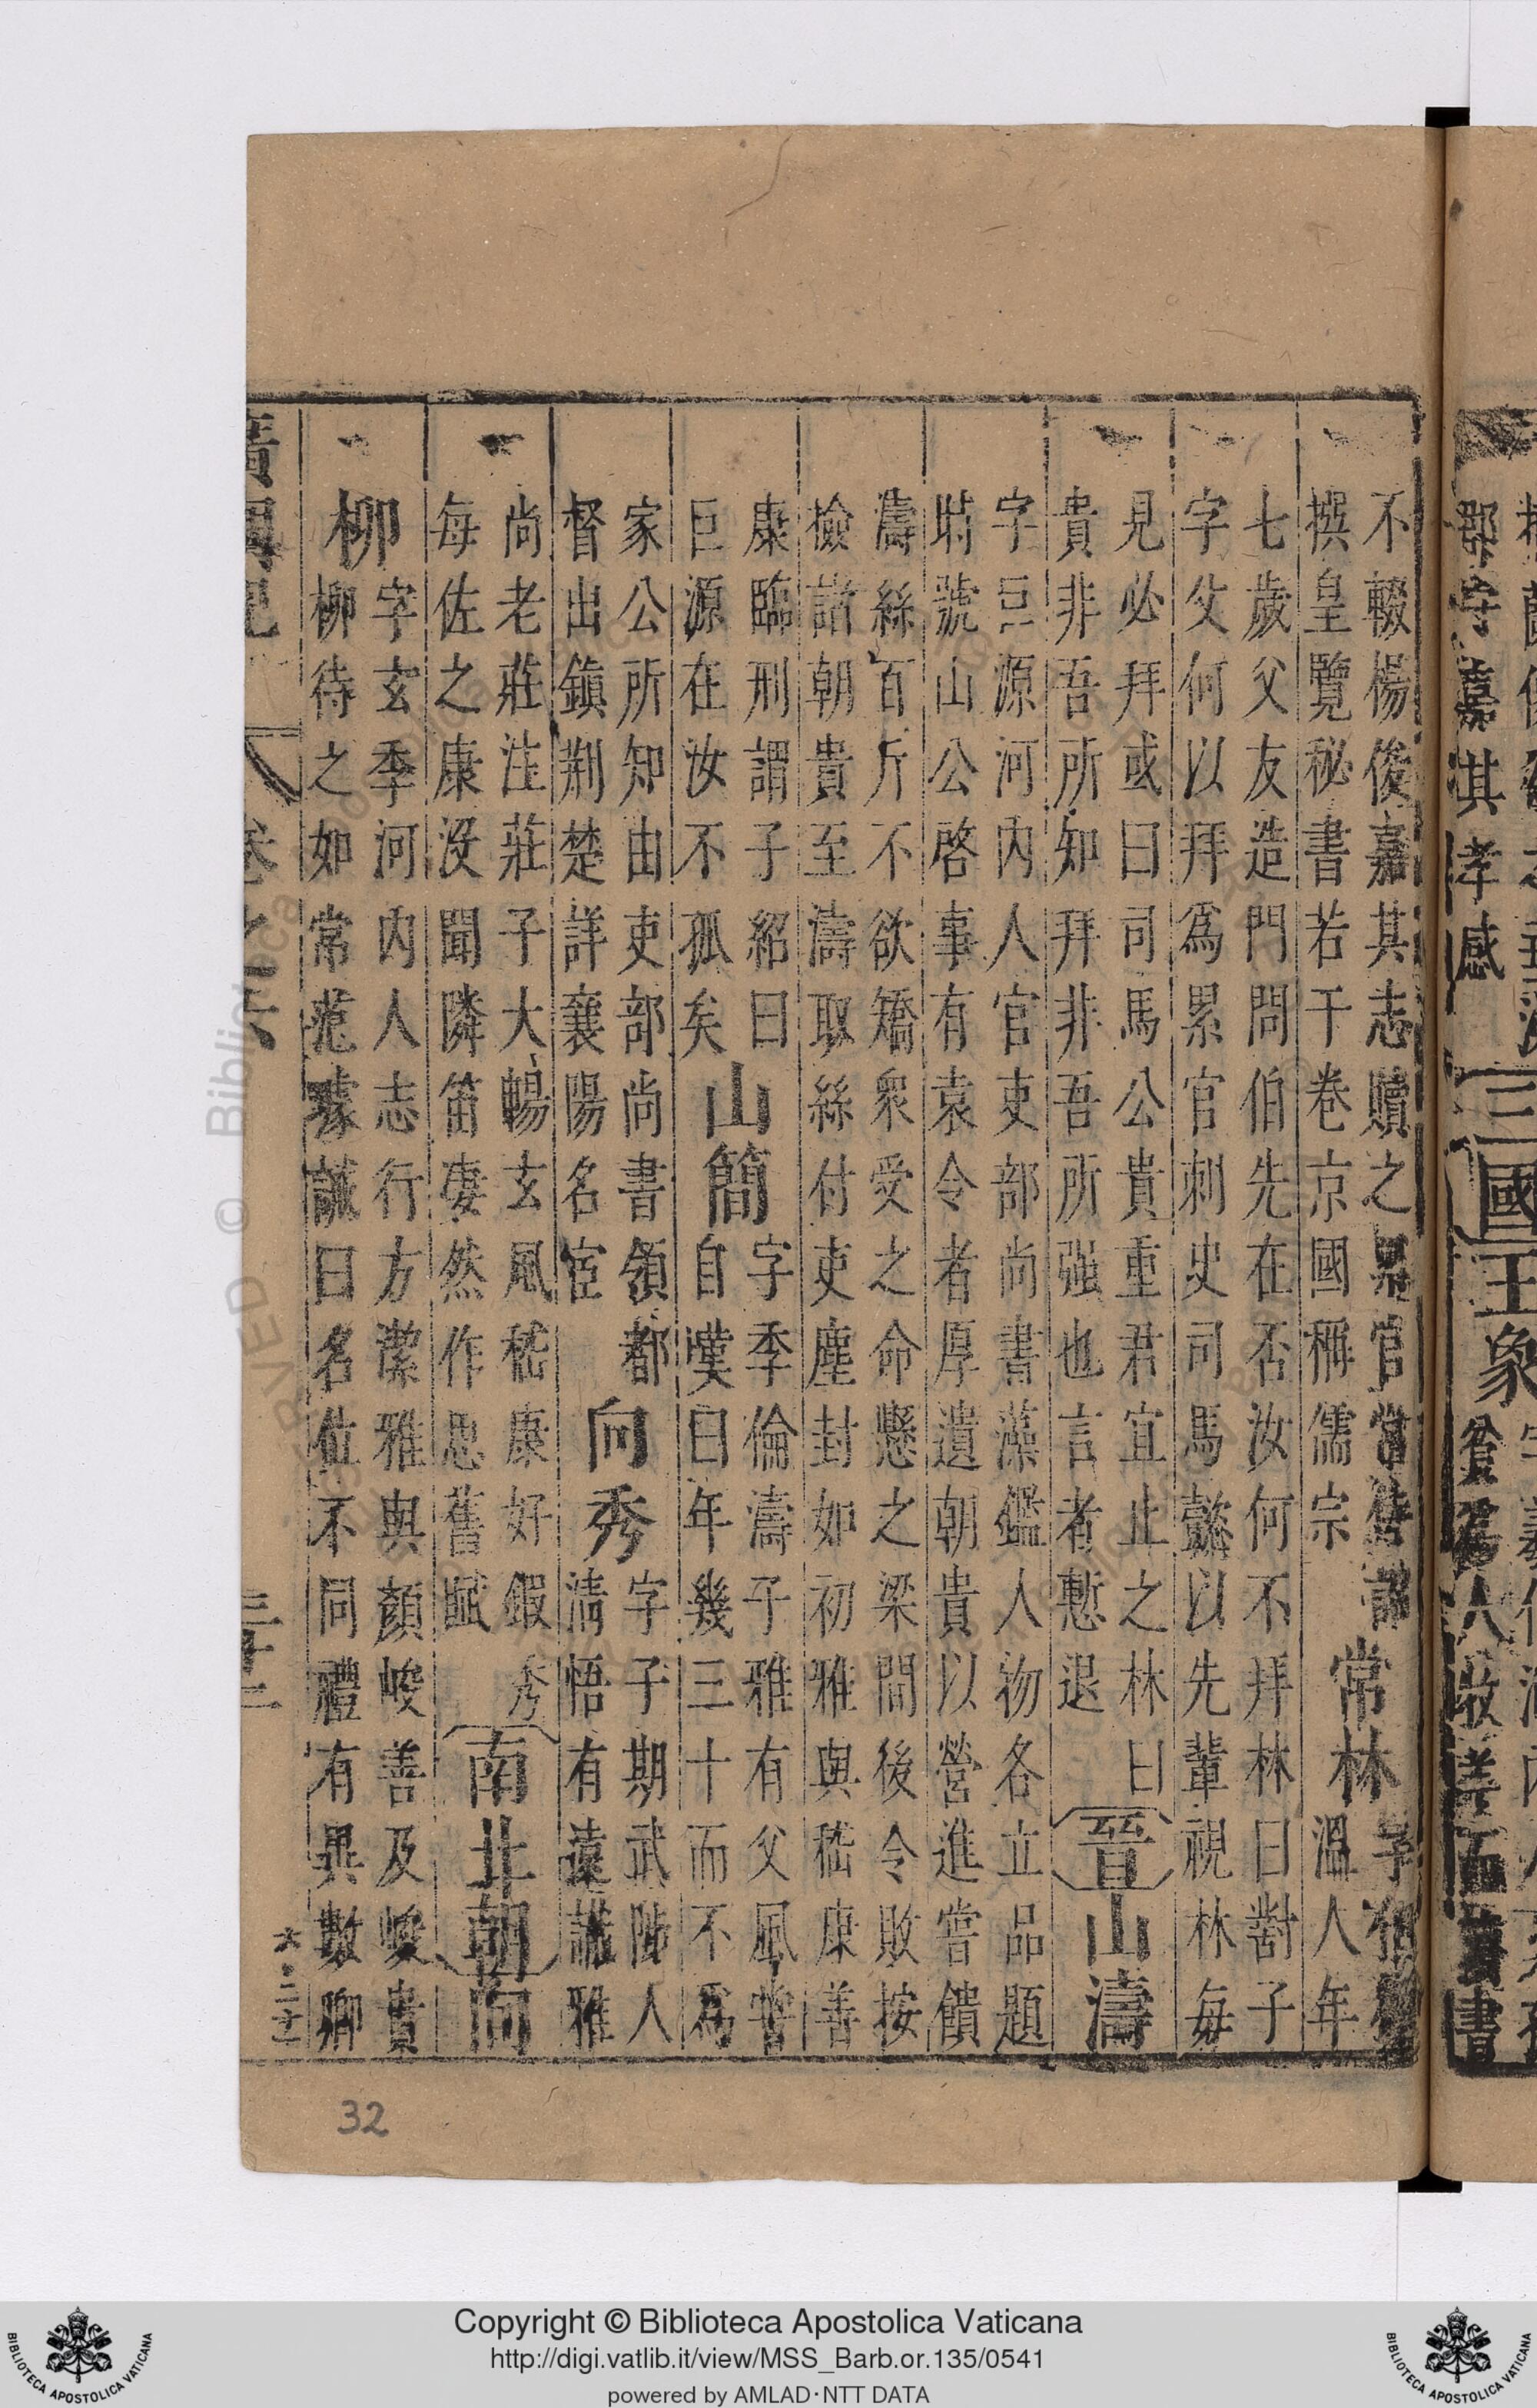 不輟楊俊嘉其志贖之累官常侍
撰皇覽秘書若干卷京國稱儒宗
常林
字
溫人年
七歲父友造門問伯先在否汝何不拜林曰對子
字父何以拜爲累官刺史司馬懿以先輩視林每
見必拜或曰司馬公貴重君宜止之林曰
貴非吾所知拜非吾所强也言者慙退
晉
山濤
字巨源河內人官吏部尚書藻鑑人物各立品題
時號山公啓事有袁令者厚遺朝貴以營進嘗饋
濤絲百斤不欲矯衆受之命懸之梁間後令敗按
檢諸朝貴至濤取絲付吏塵封如初雅與嵇康善
康臨刑謂子紹曰
巨源在汝不孤矣
山簡
字季倫濤子雅有父風嘗
自嘆曰年幾三十而不爲
家公所知由吏部尚書領都
督出鎮荆楚詳襄陽名宦
向秀
字子期武陟人
淸悟有遠識雅
尚老莊注莊子大暢玄風嵇康好鍜秀
每佐之康没聞隣笛凄然作思舊賦
南北朝
向
柳
字玄季河内人志行方潔雅與顏峻善及峻貴
柳待之如常范璩誡曰名位不同禮有異數卿
卷之六
三十二
六·二十一
32
郡守嘉其孝感
三國
王象
Copyright © Biblioteca Apostolica Vaticana
http://digi.vatlib.it/view/MSS_Barb.or.135/0541
powered by AMLAD·NTT DATA
BIBLIOTECA APOSTOLICA VATICANA
BIBLIOTECA APOSTOLICA VATICANA